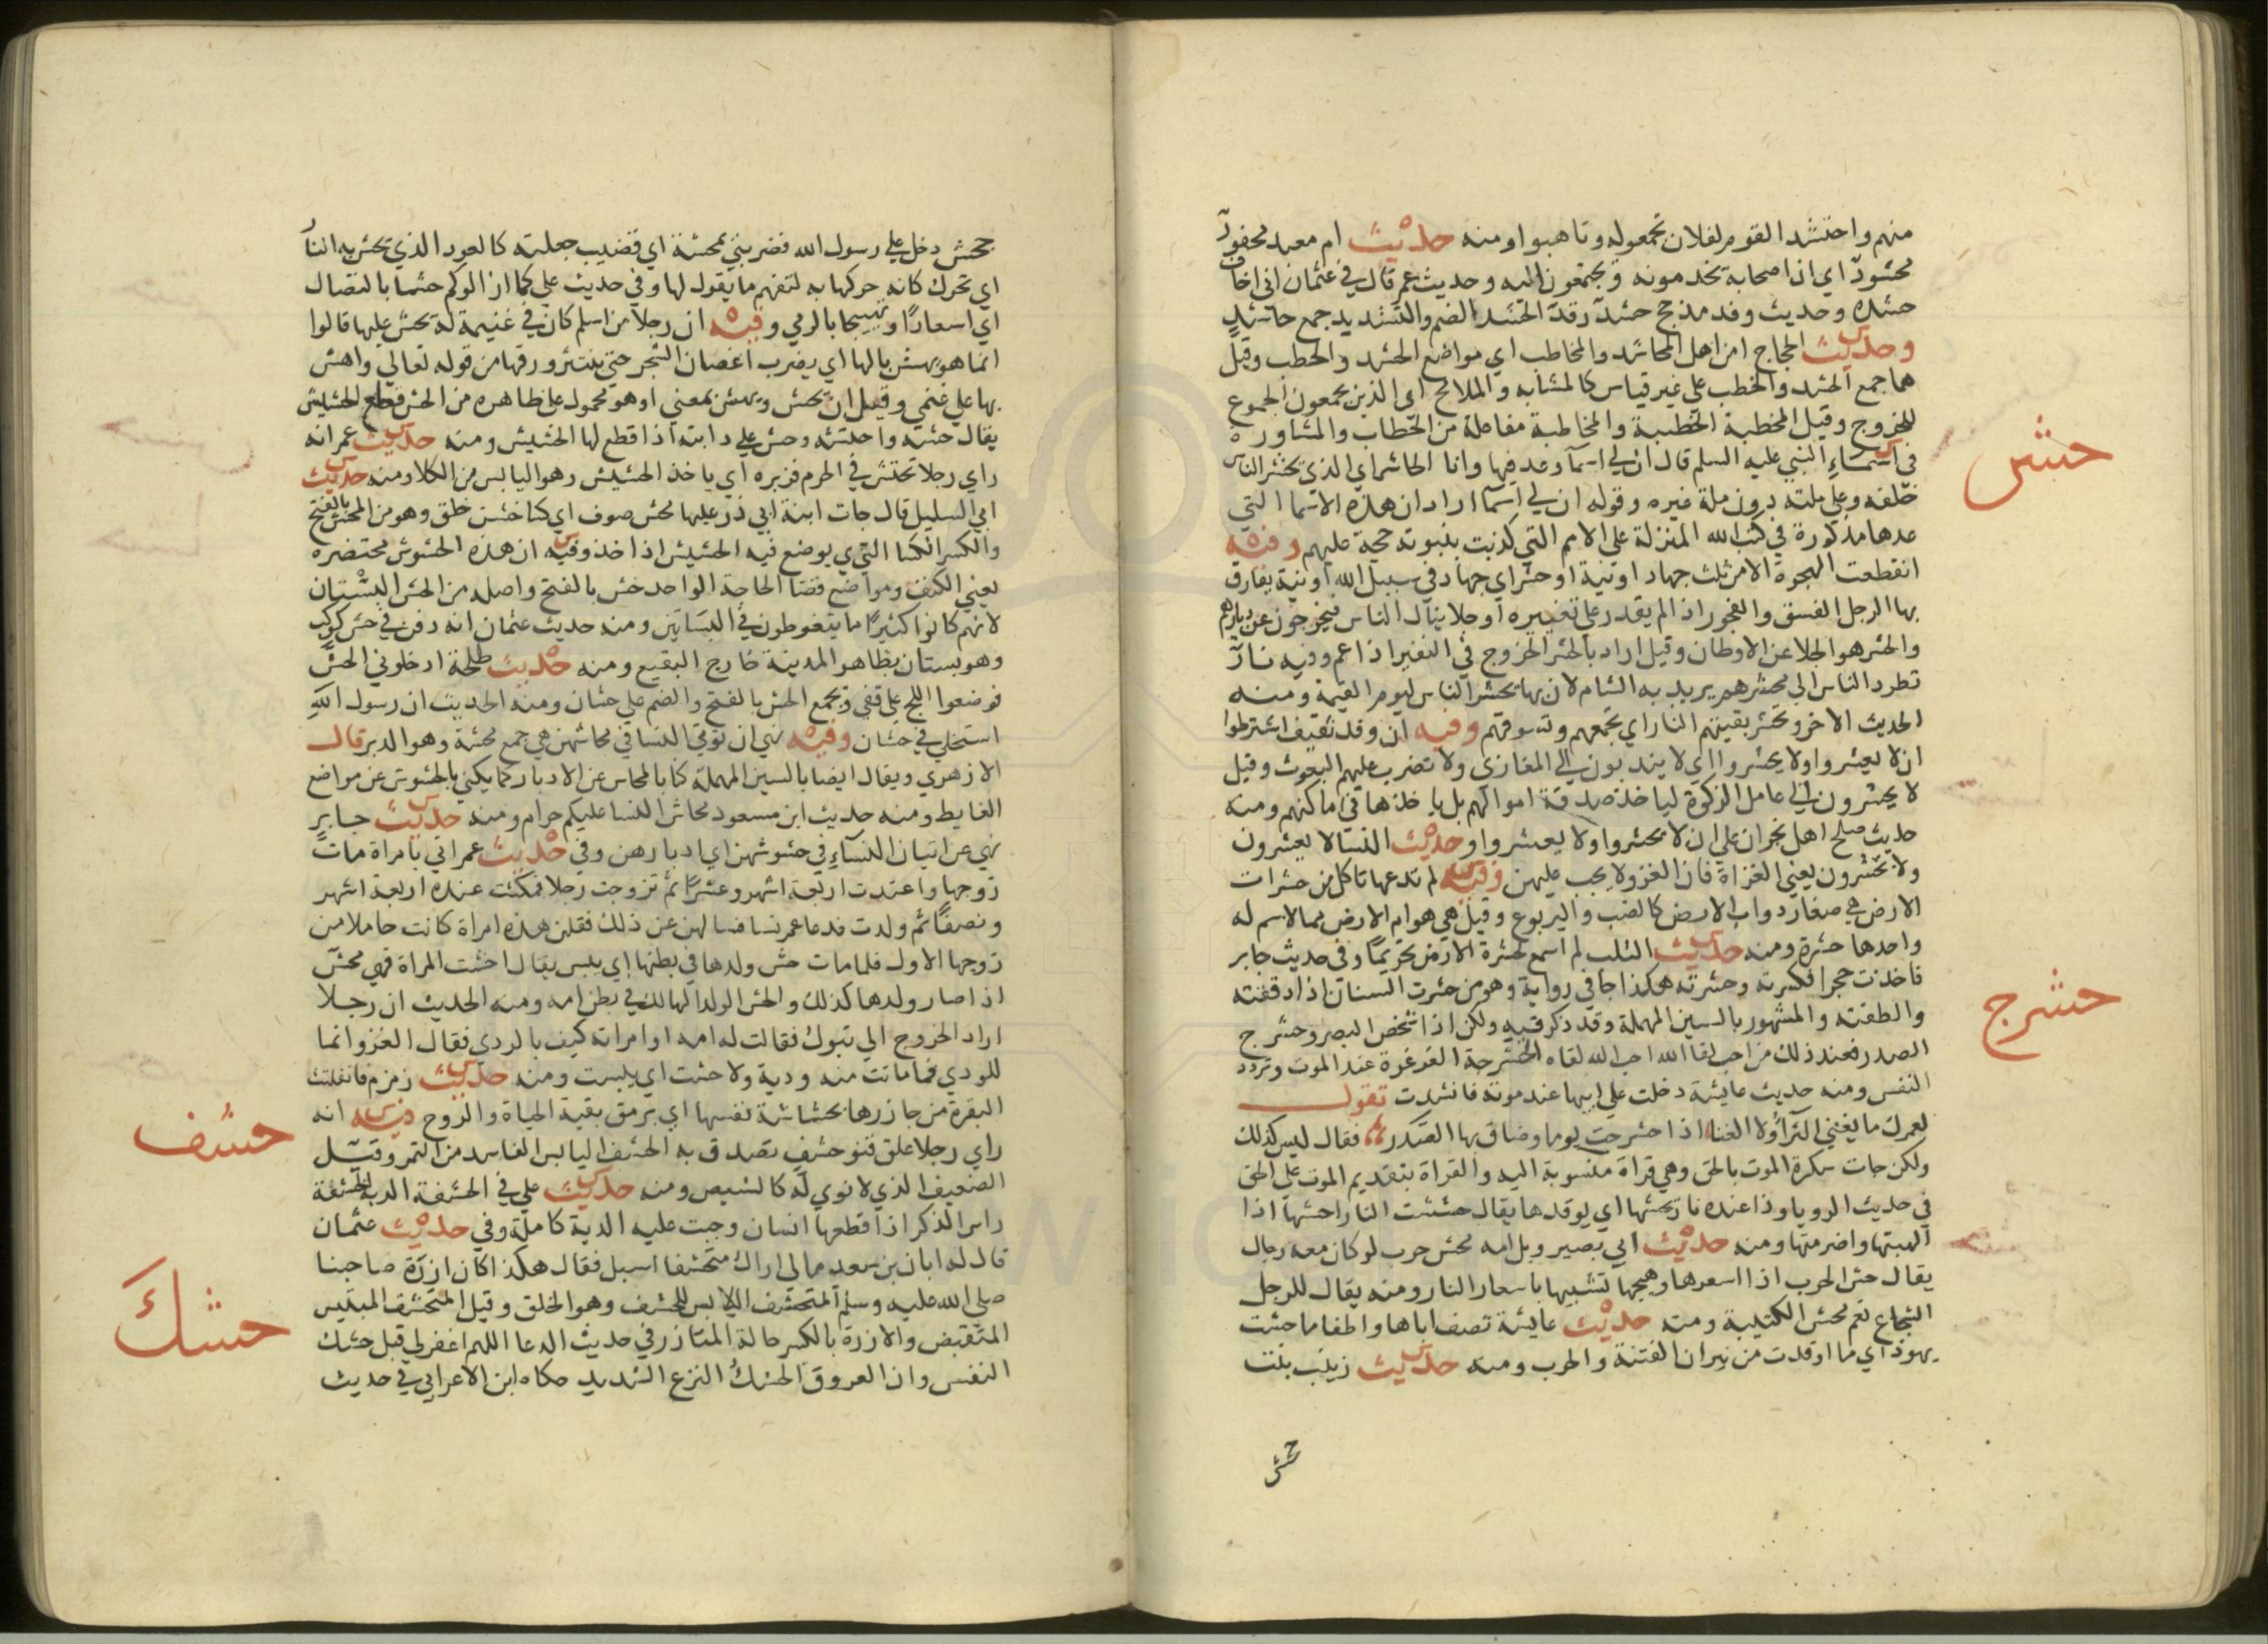 منهم واحتشد القوم لفلان تجمعوا له وتاهبوا ومنه حديث ام معبد محفود
محشود اي ان اصحابه يخدمونه ويجتمعون اليه وحديث عمر قال في عثمان اني اخاف
حشده وحديث وفد مذحج حشد رفد الحشد بالضم والتشديد جمع حاشد
وحديث الحجاج امن اهل المحاشد والمخاطب اي مواضع الحشد والخطب وقيل
هما جمع الحشد والخطب على غير قياس كالمشابه والملامح اي الذين يجمعون الجموع
للخروج وقيل المخطبة الخطبة والمخاطبة مفاعلة من الخطاب والمشاورة
حشر
في اسماء النبي عليه السلم قال ان لي اسما وعد فيها وانا الحاشر اي الذي يحشر الناس
خلفه وعلى ملته دون ملة غيره وقوله ان لي اسما اراد ان هذه الاسما التي
عدها مذكورة في كتب الله المنزلة على الامم التي كذبت بنبوته حجة عليهم وفيه
انقطعت الهجرة الا من ثلث جهاد او نية او حشر اي جهاد في سبيل الله او نية يفارق
بها الرجل الفسق والفجور اذا لم يقدر على تغييره او جلا ينال الناس فيخرجون عن ديارهم
والحشر هو الجلا عن الاوطان وقيل اراد بالحشر الخروج في النفير اذا عم وفيه نار
تطرد الناس الى محشرهم يريد به الشام لان بها يحشر الناس ليوم القيمة ومنه
الحديث الاخر وتحشر بقيتهم النار اي تجمعهم وتسوقهم وفيه ان وفد ثقيف اشترطوا
ان لا يعشروا ولا يحشروا اي لا يندبون الى المغازي ولا تضرب عليهم البعوث وقيل
لا يحشرون الى عامل الزكوة ليا خذ صدقة اموالهم بل يا خذها في اماكنهم ومنه
حديث صلح اهل نجران على ان لا يحشروا ولا يعشروا وحديث النسا لا يعشرون
ولا يحشرون يعني الغزاة فان الغزو لا يجب عليهن وفيه لم تدعها تاكل من حشرات
الارض هي صغار دواب الارض كالضب واليربوع وقيل هي هوام الارض مما لا سم له
واحدها حشرة ومنه حديث التلب لم اسمع لحشرة الارض تحريمًا وفي حديث جابر
فاخذت حجرا فكسرته وحشرته هكذا جا في رواية وهو من حشرت السنان اذا دققته
والطفته والمشهور بالسين المهملة وقد ذكر فيه ولكن اذا شخص البصر وحشرج
حشرج
الصدر فعند ذلك من احب لقا الله احب الله لقاه الحشرجة الغرغرة عند الموت وتردد
النفس ومنه حديث عايشة دخلت على ابيها عند موته فانشدت تقول
لعمرك ما يغني الثراء ولا الغنا اذا حشرجت يوما وضاق بها الصدر فقال ليس كذلك
ولكن جات سكرة الموت بالحق وهي قراة منسوبة اليه والقراة بتقديم الموت على الحق
في حديث الرويا وذا عنده نار يحشها اي يوقدها يقال حششت النار احشها اذا
الهبتها واضرمتها ومنه حديث ابي بصير ويل امه محش حرب لو كان معه رجال
يقال حش الحرب اذا اسعرها وهيجها تشبيها باسعار النار ومنه يقال للرجل
الشجاع نعم محش الكتيبة ومنه حديث عايشة تصف اباها واطفا ما حشت
يهود اي ما اوقدت من نيران الفتنة والحرب ومنه حديث زينب بنت
جحش
جحش دخل علي رسول الله فضربني بمحشة اي قضيب جعلته كالعود الذي تحش به النار
اي تحرك كانه حركها به لتفهم ما يقول لها وفي حديث علي كما ازالوكم حشا بالنصال
اي اسعارًا وتهييجا بالرمي وفيه ان رجلا من اسلم كان في غنيمة له يحش عليها قالوا
انما هو يهش بالها اي يضرب اغصان الشجر حتى ينتثر ورقها من قوله تعالي واهش
بها على غنمي وقيل ان يحش ويهش بمعني او هو محمول على ظاهره من الحش قطع الحشيش
يقال حشه واحتشه وحش على دابته اذا قطع لها الحشيش ومنه حديث عمر انه
راي رجلا تحتش في الحرم فزبره اي ياخذ الحشيش وهو اليابس من الكلا ومنه حديث
ابي السليل قال جات ابنة ابي ذر عليها محش صوف اي كسا خشن خلق وهو من المحش بالفتح
والكسر الكسا الذي يوضع فيه الحشيش اذا اخذ وفيه ان هذه الحشوش محتضره
يعني الكنف ومواضع قضا الحاجة الواحد حش بالفتح واصله من الحش البستان
لانهم كانوا كثيرًا ما يتغوطون في البساتين ومنه حديث عثمان انه دفن في حش كوكب
وهو بستان بظاهر المدينة خارج البقيع ومنه حديث طلحة ادخلوني الحش
فوضعوا اللج على قفي ويجمع الحش بالفتح والضم على حشان ومنه الحديث ان رسول الله
استخلى في حشان وفيه نهي ان توتي النسا في محاشهن هي جمع محشة وهو الدبر قال
الازهري ويقال ايضا بالسين المهملة كنا بالمحاس عن الادبار كما يكني بالحشوش عن مواضع
الغايط ومنه حديث ابن مسعود محاش النسا عليكم حرام ومنه حديث جابر
نهي عن اتيان النساء في حشوشهن اي ادبارهن وفي حديث عمر اتي بامراة مات
زوجها واعتدت اربعة اشهر وعشرًا ثم تزوجت رجلا فمكثت عنده اربعة اشهر
ونصفًا ثم ولدت فدعا عمر نسا فسالهن عن ذلك فقلن هذه امراة كانت حاملا من
زوجها الاول فلما مات حش ولدها في بطنها اي يبس يقال احشت المراة فهي محش
اذا صار ولدها كذلك والحش الولد الهالك في بطن امه ومنه الحديث ان رجلا
اراد الخروج الي تبوك فقالت له امه او امراته كيف بالودي فقال الغزو انما
للودي فما ماتت منه ودية ولا حشت اي يبست ومنه حديث زمزم فانفلتت
البقرة من جازرها بحشاشة نفسها اي برمق بقية الحياة والروح وفيه انه
حشف
راي رجلا علق قنو حشف تصدق به الحشف اليابس الفاسد من التمر وقيل
الضعيف الذي لا نوي له كالشيص ومنه حديث علي في الحشفة الدية الحشفة
راس الذكر اذا قطعها انسان وجبت عليه الدية كاملة وفي حديث عثمان
قال له ابان بن سعد مالي اراك متحشفا اسبل فقال هكذا كان ازرة صاحبنا
صلى الله عليه وسلم المتحشف اللابس للحشف وهو الخلق وقيل المتحشف المبتيس
حشك
المتقبض والازرة بالكسر حالة المتازر في حديث الدعا اللهم اغفر لي قبل حشك
النفس وان العروق الحشك النزع الشديد حكاه ابن الاعرابي في حديث